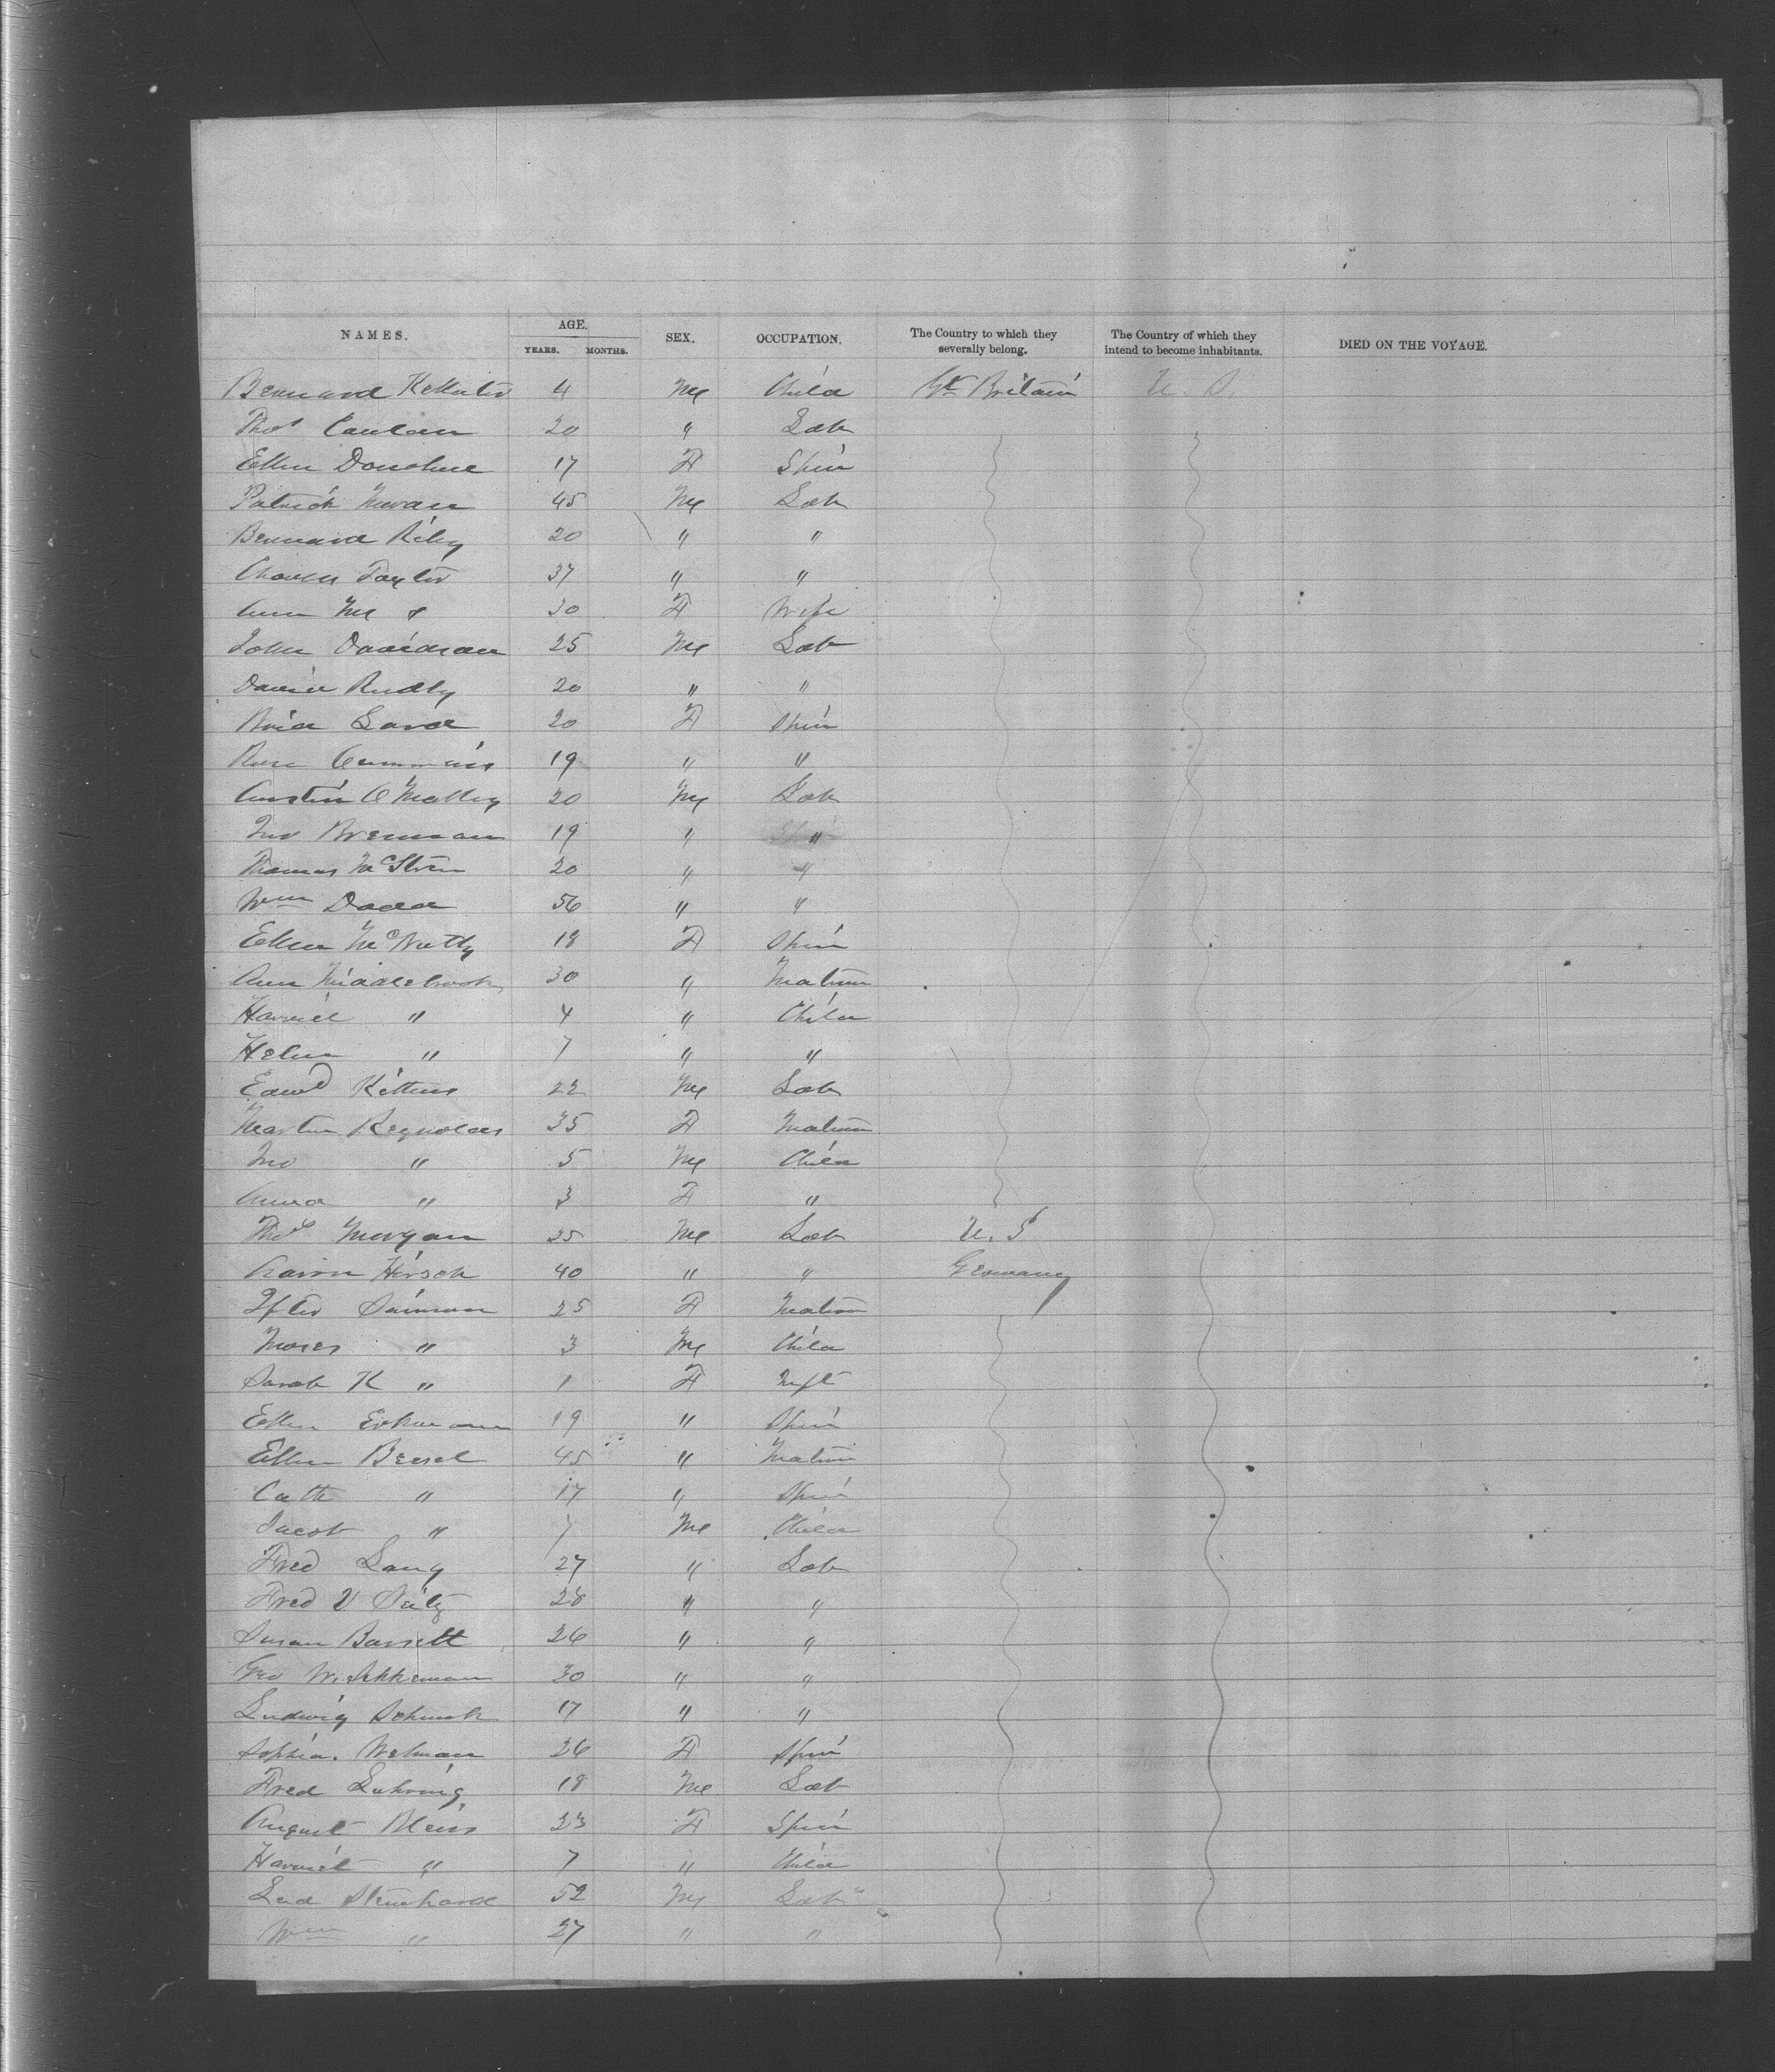 NAMES. AGE. SEX. OCCUPATION. The Country to which they severally belong. The Country of which they intend to become inhabitants. DIED ON THE VOYAGE.
YEARS. MONTHS.
Bernard 4 M Child Gt Britain U. S.
Thos 20 " Lab
Ellen Donohue 17 F Spin
Patrick 45 M Lab
Bernard Riley 20 " "
Charles Taylor 37 " "
Ann M 30 F Wife
John Davidson 25 M Lab
Daniel 20 " "
20 F Spin
Rose Cummins 19 " "
Austin O'Malley 20 M Lab
Jno Brennan 19 " "
Thomas 20 " "
Wm Dodd 56 " "
Ellen McNulty 18 F Spin
Ann Middlebrook 30 " Matron
Harriet " 4 " Child
Helen " 7 " "
Edwd 22 M Lab
Reynolds 35 F Matron
Jno " 5 M Child
Anna " 3 F "
Thos Morgan 25 M Lab U. S
Aaron Hirsch 40 " " Germany
25 F Matron
Moses " 3 M Child
Sarah K " 1 F Inft
Ellen 19 " Spin
Ellen 45 " Matron
Cath " 17 " Spin
Jacob " 7 M Child
Fred Lang 27 " Lab
Fred V 28 " "
Susan Barrett 26 " "
Geo 30 " "
Ludwig 17 " "
Sophia. 26 F Spin
Fred Luhring 18 M Lab
August 23 F Spin
Harriet " 7 " Child
52 M Lab
Wm " 27 " "